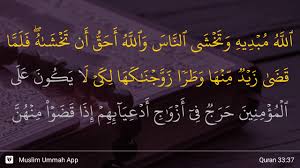 ٱللَّهُ مُبْدِيهِ وَتَخْشَى ٱلنَّاسَ وَٱللَّهُ أَحَقُّ أَن تَخْشَىٰهُ ۖ فَلَمَّا
قَضَىٰ زَيْدٌ مِّنْهَا وَطَرًا زَوَّجْنَـٰكَهَا لِكَىْ لَا يَكُونَ عَلَى
ٱلْمُؤْمِنِينَ حَرَجٌ فِىٓ أَزْوَٰجِ أَدْعِيَآئِهِمْ إِذَا قَضَوْا۟ مِنْهُنَّ
Muslim Ummah App
Quran 33:37